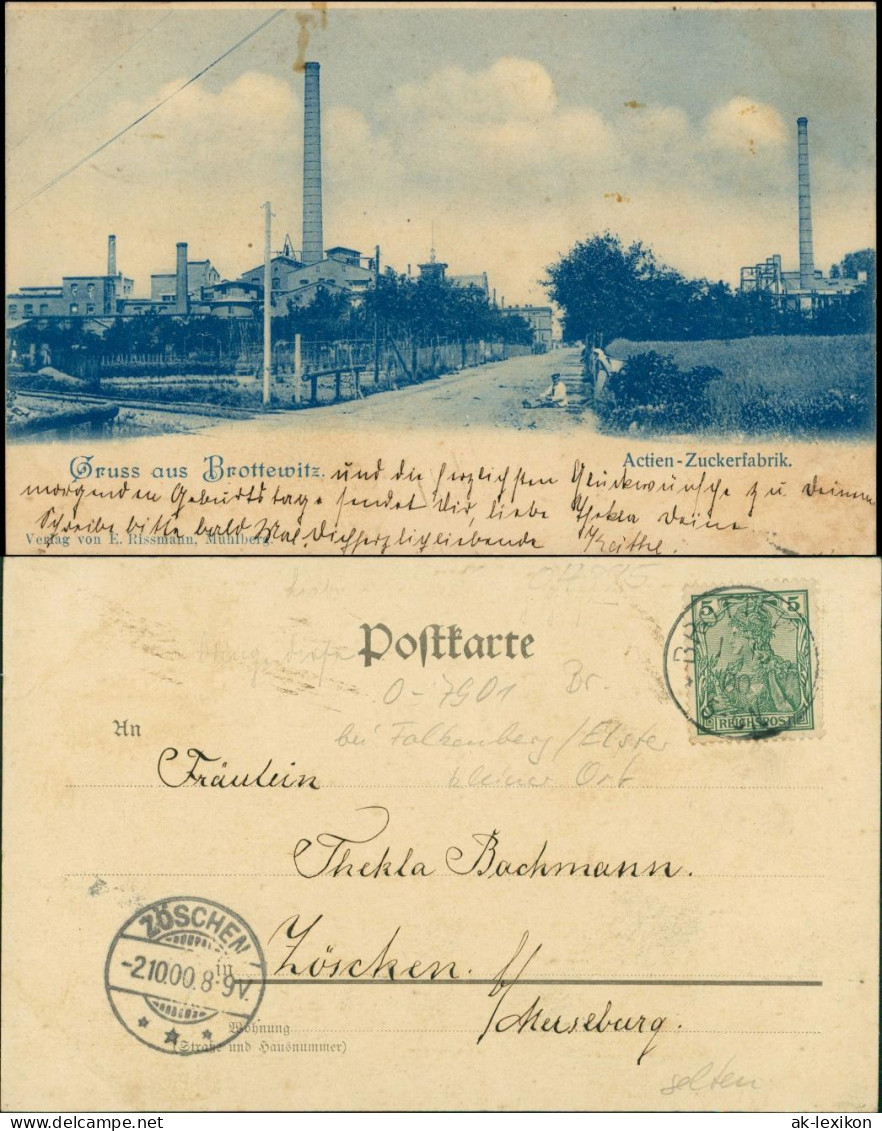 Gruss aus Brottewitz.
Actien-Zuckerfabrik.
und die herzlichsten Glückwünsche zu deinem
morgenden Geburtstage sendet Dir, liebe Thekla deine
Schreibe bitte bald Mal, Dich herzlich liebende
Verlag von E. Rissmann, Mühlberg.
Postkarte
5 5
REICHSPOST
O-7901 Br.
bei Falkenberg/Elster
kleiner Ort
An
Fräulein
Thekla Bachmann.
ZÖSCHEN
-2.10.00.8-9V.
in
Zöschen. b/
Merseburg.
Wohnung
(Straße und Hausnummer)
selten
delcampe.net
ak-lexikon